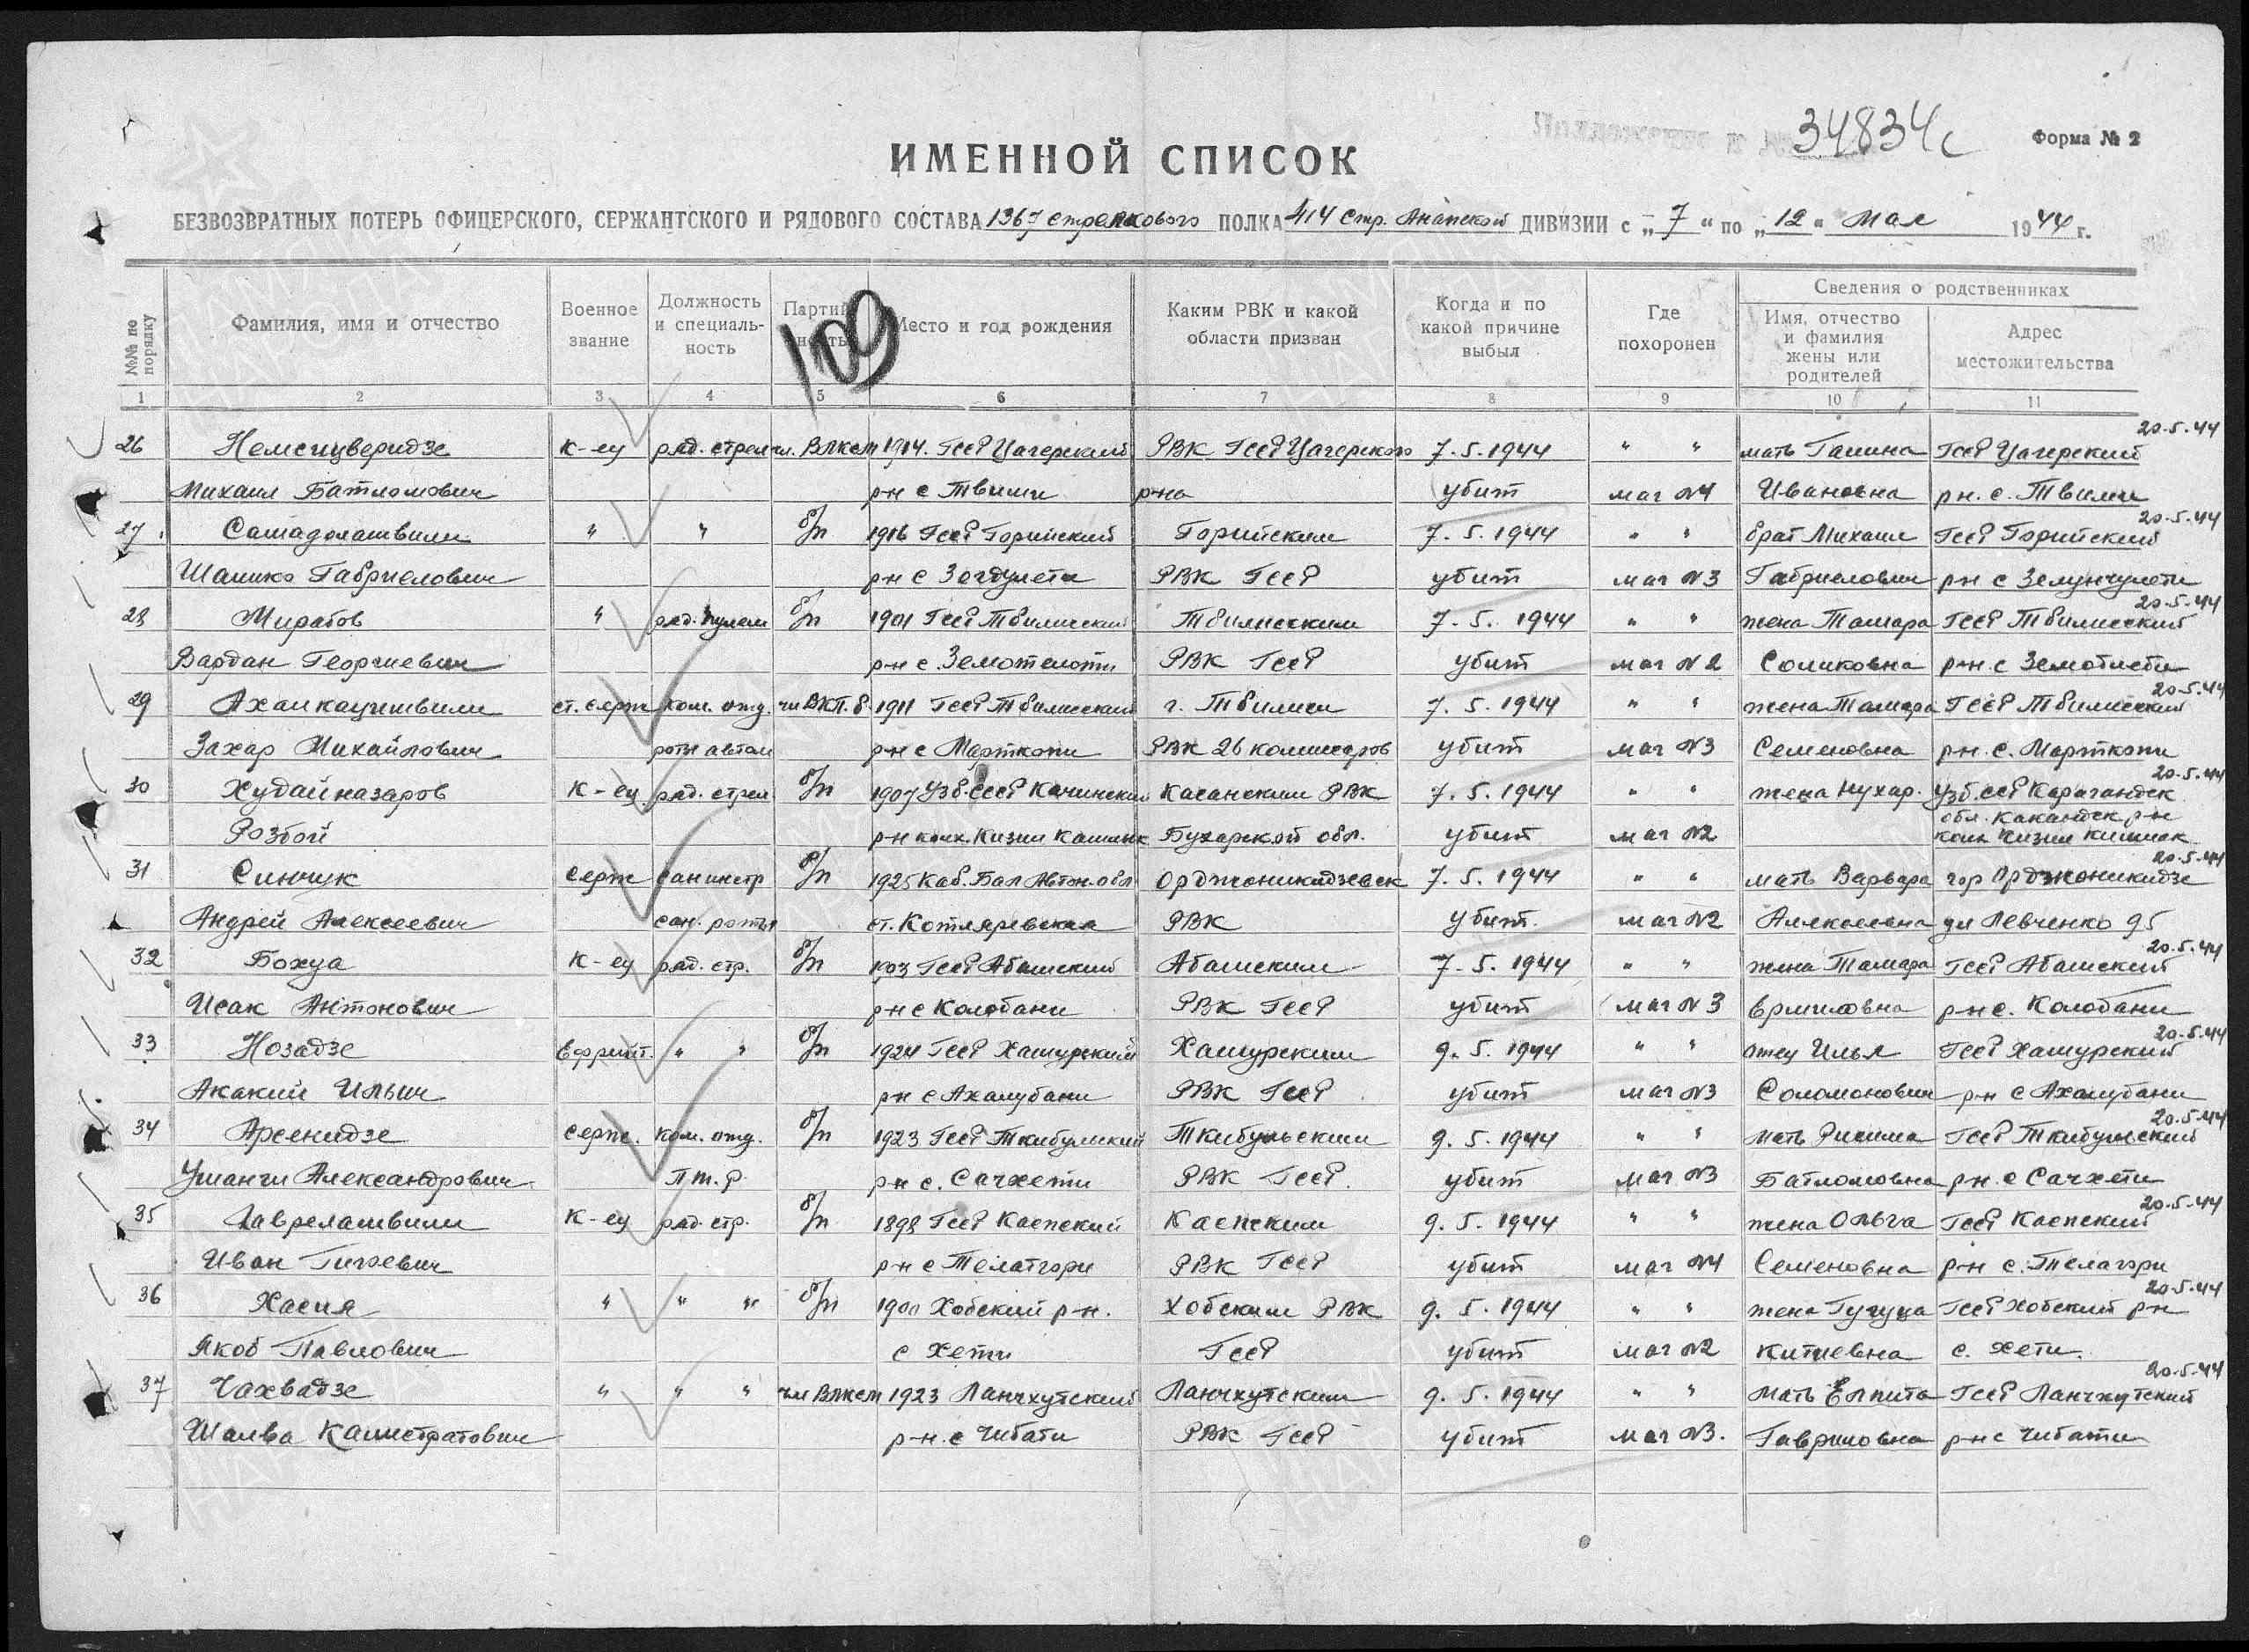 34834с
Форма № 2
ИМЕННОЙ СПИСОК
БЕЗВОЗВРАТНЫХ ПОТЕРЬ ОФИЦЕРСКОГО, СЕРЖАНТСКОГО И РЯДОВОГО СОСТАВА 1367 стрелкового ПОЛКА 414 стр. Анапской ДИВИЗИИ с „7“ по „12“ Мая 1944 г.
109
№№ по порядку
Фамилия, имя и отчество
Военное звание
Должность и специальность
Место и год рождения
Каким РВК и какой области призван
Когда и по какой причине выбыл
Где похоронен
Сведения о родственниках
Имя, отчество и фамилия жены или родителей
Адрес местожительства
1 2 3 4 5 6 7 8 9 10 11
20-5-44
26 Немсицверидзе к-ец ряд. стрел чл. ВЛКСМ 1914. ГССР Цагерский РВК ГССР Цагерского 7.5.1944 " " мать Галина ГССР Цагерский
Михаил Батломович р-н с Твиши р-на убит маг №4 Ивановна р-н. с. Твиши
20-5-44
27 Самадолашвили " " б/п 1916 ГССР Горийский Горийским 7.5.1944 " " брат Михаил ГССР Горийский
Шалико Габриелович р-н с РВК ГССР убит маг №3 Габриелович р-н с
20-5-44
28 Мирабов " ряд. пулем б/п 1901 ГССР Тбилисский Тбилисским 7.5.1944 " " жена Тамара ГССР Тбилисский
Вардан Георгиевич р-н с. РВК ГССР убит маг №2 Соликовна р-н с
20-5-44
29 ст. серж ком. отд. чл ВКП.б. 1911 ГССР Тбилисский г. Тбилиси 7.5.1944 " " жена Тамара ГССР Тбилисский
Захар Михайлович роты автом р-н с Марткопи РВК 26 комиссаров убит маг №3 Семеновна р-н. с. Марткопи
20-5-44
30 Худайназаров к-ец ряд. стрел б/п 1907 Узб. ССР Касанским РВК 7.5.1944 " " жена Мухар. Узб. ССР
Розбой р-н колх. Кизил Бухарской обл. убит маг №2 обл. р-н
колх Кизил кишлак
20-5-44
31 Синчук Серж Санинстр б/п 1925 Каб. Бал Автон. обл Орджоникидзевск 7.5.1944 " " мать Варвара гор Орджоникидзе
Андрей Алексеевич сан. роты ст. Котляревская РВК убит маг №2 Алексеевна ул Левченко 95
20-5-44
32 Бохуа к-ец ряд. стр. б/п 1903 ГССР Абашский Абашским 7.5.1944 " " жена Тамара ГССР Абашский
Исак Антонович р-н с Колобани РВК ГССР убит маг №3 Ермиловна р-н с. Колобани
20-5-44
33 Нозадзе Ефрейт. " " б/п 1924 ГССР Хашурский Хашурским 9.5.1944 " " отец Илья ГССР Хашурский
Акакий Ильич р-н с Ахалубани РВК ГССР убит маг №3 Соломонович р-н с Ахалубани
20-5-44
34 Арсенидзе серж. ком. отд. б/п 1923 ГССР Ткибульский Ткибульским 9.5.1944 " " мать ГССР Ткибульский
Ушанги Александрович ПТ.Р р-н с. Сачхети РВК ГССР. убит маг №3 Батломовна р-н. с Сачхети
20-5-44
35 Лаврелашвили к-ец ряд. стр. б/п 1898 ГССР Каспский Каспским 9.5.1944 " " жена Ольга ГССР Каспский
Иван Гигоевич р-н с Телатгори РВК ГССР убит маг №4 Семеновна р-н с. Телагори
20-5-44
36 Хасия " " " б/п 1900 Хобский р-н. Хобским РВК 9.5.1944 " " жена Гугуца ГССР Хобский р-н
Якоб Павлович с Хети ГССР убит маг №2 Китиевна с. Хети.
20-5-44
37 Чахвадзе " " " чл ВЛКСМ 1923 Ланчхутский Ланчхутским 9.5.1944 " " мать Елпита ГССР Ланчхутский
Шалва Калистратович р-н. с Чибати РВК ГССР убит маг №3. Гавриловна р-н с Чибати